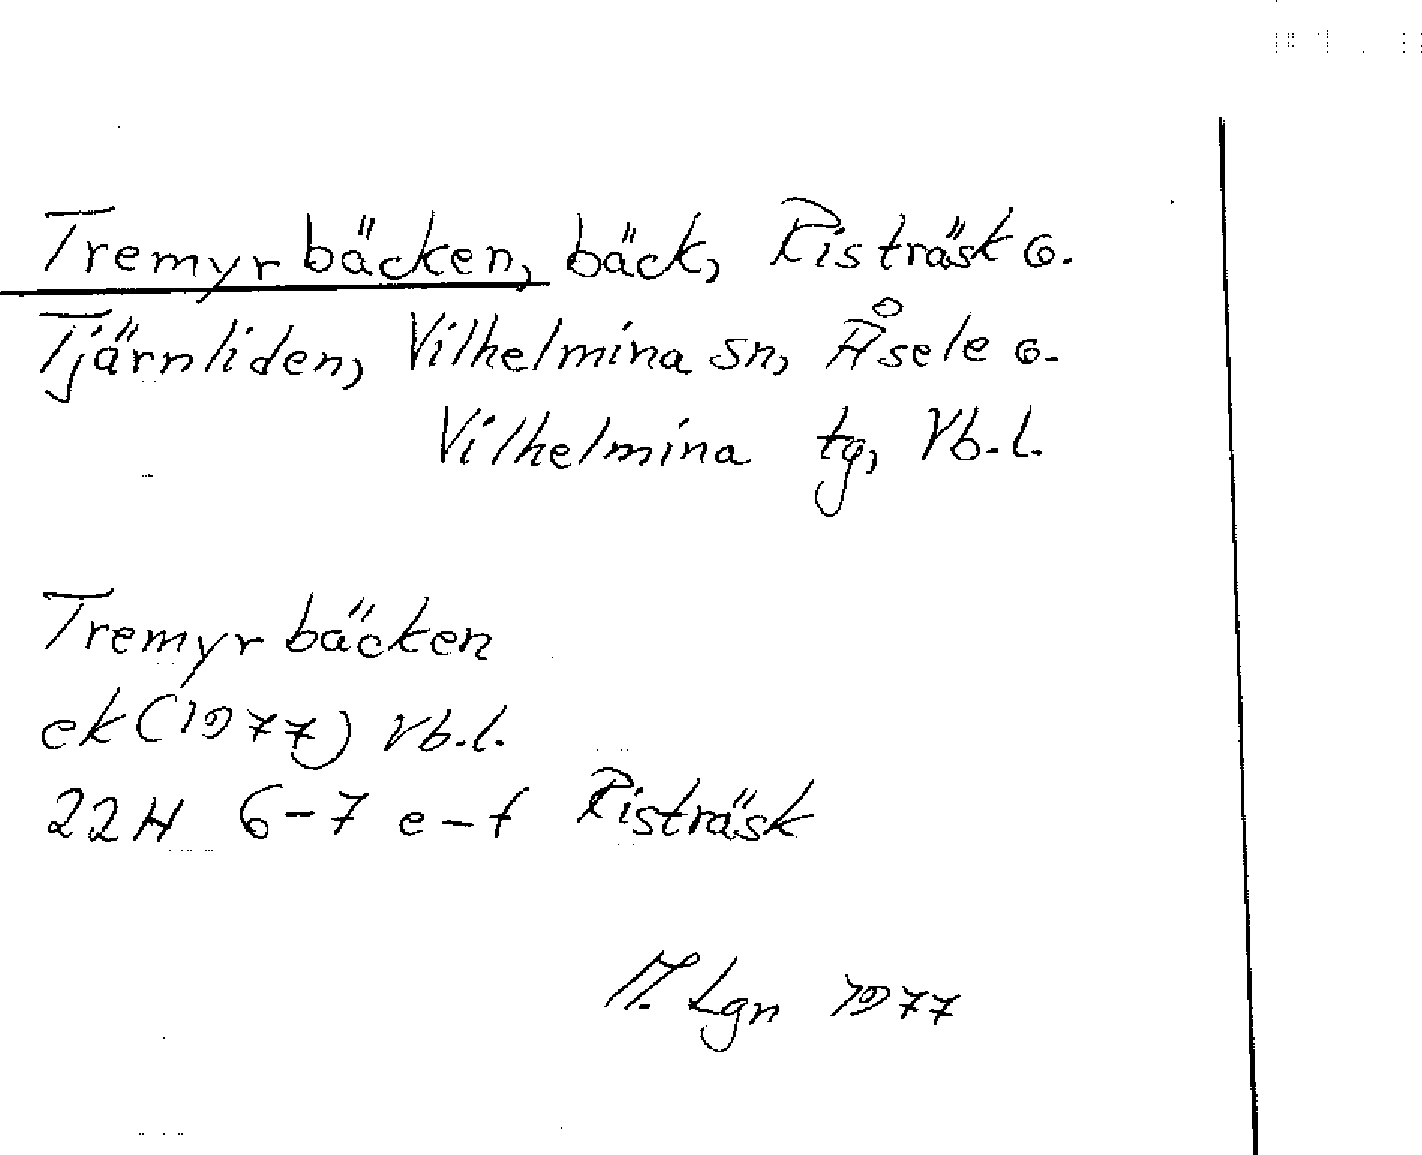 Tremyrbäcken, bäck, Risträsk o.
Tjärnliden, Vilhelmina sn, Åsele o.
Vilhelmina tg, Vb.l.
Tremyrbäcken
ek (1977) Vb.l.
22H 6-7 e-f Risträsk
M. Lgn 1977